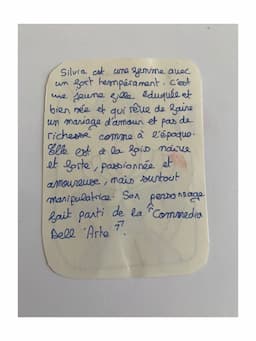 Silvia est une femme avec
un fort tempérament. C'est
une jeune fille éduquée et
bien née et qui rêve de faire
un mariage d'amour et pas de
richesse comme à l'époque.
Elle est à la fois naïve
et forte, passionnée et
amoureuse, mais surtout
manipulatrice. Son personnage
fait parti de la "Commedia
Dell 'Arte".